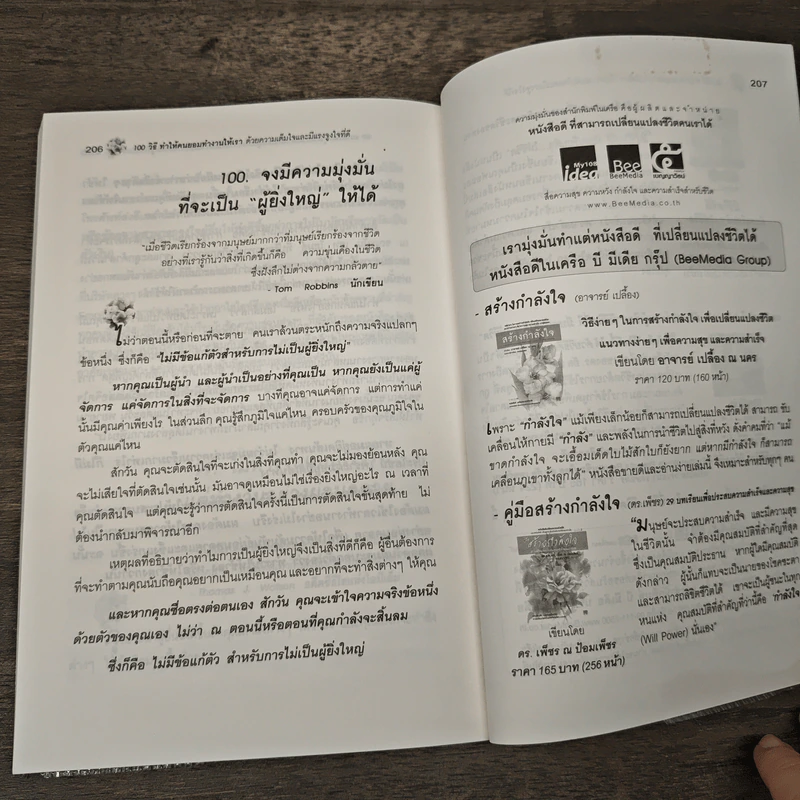 206 100 วิธี ทำให้คนยอมทำงานให้เรา ด้วยความเต็มใจและมีแรงจูงใจที่ดี
100. จงมีความมุ่งมั่น
ที่จะเป็น “ผู้ยิ่งใหญ่” ให้ได้
“เมื่อชีวิตเรียกร้องจากมนุษย์มากกว่าที่มนุษย์เรียกร้องจากชีวิต
อย่างที่เรารู้กันว่าสิ่งที่เกิดขึ้นก็คือ ความขุ่นเคืองในชีวิต
ซึ่งฝังลึกไม่ต่างจากความกลัวตาย”
- Tom Robbins นักเขียน
ไม่ว่าตอนนี้หรือก่อนที่จะตาย คนเราล้วนตระหนักถึงความจริงแปลกๆ
ข้อหนึ่ง ซึ่งก็คือ “ไม่มีข้อแก้ตัวสำหรับการไม่เป็นผู้ยิ่งใหญ่”
หากคุณเป็นผู้นำ และผู้นำเป็นอย่างที่คุณเป็น หากคุณยังเป็นแค่ผู้
จัดการ แค่จัดการในสิ่งที่จะจัดการ บางทีคุณอาจแค่จัดการ แต่การทำแค่
นั้นมีคุณค่าเพียงไร ในส่วนลึก คุณรู้สึกภูมิใจแค่ไหน ครอบครัวของคุณภูมิใจใน
ตัวคุณแค่ไหน
สักวัน คุณจะตัดสินใจที่จะเก่งในสิ่งที่คุณทำ คุณจะไม่มองย้อนหลัง คุณ
จะไม่เสียใจที่ตัดสินใจเช่นนั้น มันอาจดูเหมือนไม่ใช่เรื่องยิ่งใหญ่อะไร ณ เวลาที่
คุณตัดสินใจ แต่คุณจะรู้ว่าการตัดสินใจครั้งนี้เป็นการตัดสินใจขั้นสุดท้าย ไม่
ต้องนำกลับมาพิจารณาอีก
เหตุผลที่อธิบายว่าทำไมการเป็นผู้ยิ่งใหญ่จึงเป็นสิ่งที่ดีก็คือ ผู้อื่นต้องการ
ที่จะทำตามคุณนับถือคุณอยากเป็นเหมือนคุณ และอยากที่จะทำสิ่งต่างๆ ให้คุณ
และหากคุณซื่อตรงต่อตนเอง สักวัน คุณจะเข้าใจความจริงข้อหนึ่ง
ด้วยตัวของคุณเอง ไม่ว่า ณ ตอนนี้หรือตอนที่คุณกำลังจะสิ้นลม
ซึ่งก็คือ ไม่มีข้อแก้ตัว สำหรับการไม่เป็นผู้ยิ่งใหญ่
207
ความมุ่งมั่นของสำนักพิมพ์ในเครือ คือผู้ผลิตและจำหน่าย
หนังสือดี ที่สามารถเปลี่ยนแปลงชีวิตคนเราได้
My108 idea Bee BeeMedia เบญญาวัฒน์
สื่อความสุข ความหวัง กำลังใจ และความสำเร็จสำหรับชีวิต
www.BeeMedia.co.th
เรามุ่งมั่นทำแต่หนังสือดี ที่เปลี่ยนแปลงชีวิตได้
หนังสือดีในเครือ บี มีเดีย กรุ๊ป (BeeMedia Group)
- สร้างกำลังใจ (อาจารย์ เปลื้อง)
สร้างกำลังใจ
วิธีง่ายๆ ในการสร้างกำลังใจ เพื่อเปลี่ยนแปลงชีวิต
แนวทางง่ายๆ เพื่อความสุข และความสำเร็จ
เขียนโดย อาจารย์ เปลื้อง ณ นคร
ราคา 120 บาท (160 หน้า)
เพราะ “กำลังใจ” แม้เพียงเล็กน้อยก็สามารถเปลี่ยนแปลงชีวิตได้ สามารถ ขับ
เคลื่อนให้กายมี “กำลัง” และพลังในการนำชีวิตไปสู่สิ่งที่หวัง ดังคำคมที่ว่า “แม้
ขาดกำลังใจ จะเอื้อมเด็ดใบไม้สักใบก็ยังยาก แต่หากมีกำลังใจ ก็สามารถ
เคลื่อนภูเขาทั้งลูกได้” หนังสือขายดีและอ่านง่ายเล่มนี้ จึงเหมาะสำหรับทุกๆ คน
- คู่มือสร้างกำลังใจ (ดร.เพียร) 29 บทเรียนเพื่อประสบความสำเร็จและความสุข
“มนุษย์จะประสบความสำเร็จ และมีความสุข
ในชีวิตนั้น จำต้องมีคุณสมบัติที่สำคัญที่สุด
ซึ่งเป็นคุณสมบัติประธาน หากผู้ใดมีคุณสมบัติ
ดังกล่าว ผู้นั้นก็แทบจะเป็นนายของโชคชะตา
และสามารถลิขิตชีวิตได้ เขาจะเป็นผู้ชนะในทุก
หนแห่ง คุณสมบัติที่สำคัญที่ว่านี้คือ กำลังใจ
(Will Power) นั่นเอง”
เขียนโดย
ดร. เพียร ณ ป้อมเพ็ชร
ราคา 165 บาท (256 หน้า)